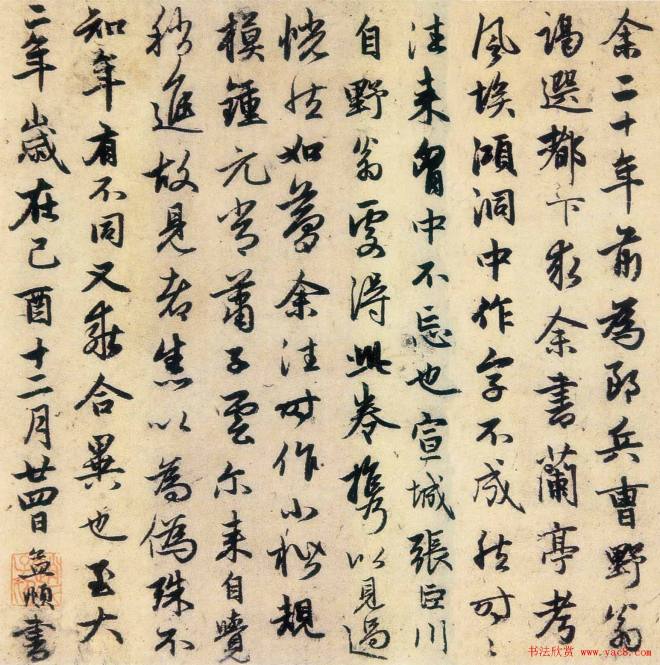 余二十年前為郎兵曹野翁
謁選都下求余書蘭亭考
風埃澒洞中作字不成然時〻
往来胷中不忘也宣城張巨川
自野翁處得此卷攜以見過
怳然如夢余往時作小楷規
模鍾元常蕭子雲尔来自覺
稍進故見者悉以為偽殊不
知年有不同又乖合異也至大
二年歲在己酉十二月廿四日孟頫書
书法欣赏 www.yac8.com